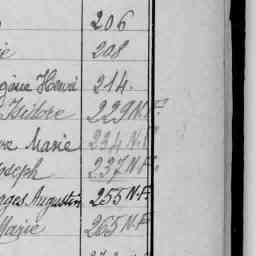 206
208
Henri 214.
Isidore 229 N.F.
Marie 234 N.F.
oseph 237 N.F.
ges Augustin 255 N.F.
Marie 265 N.F.